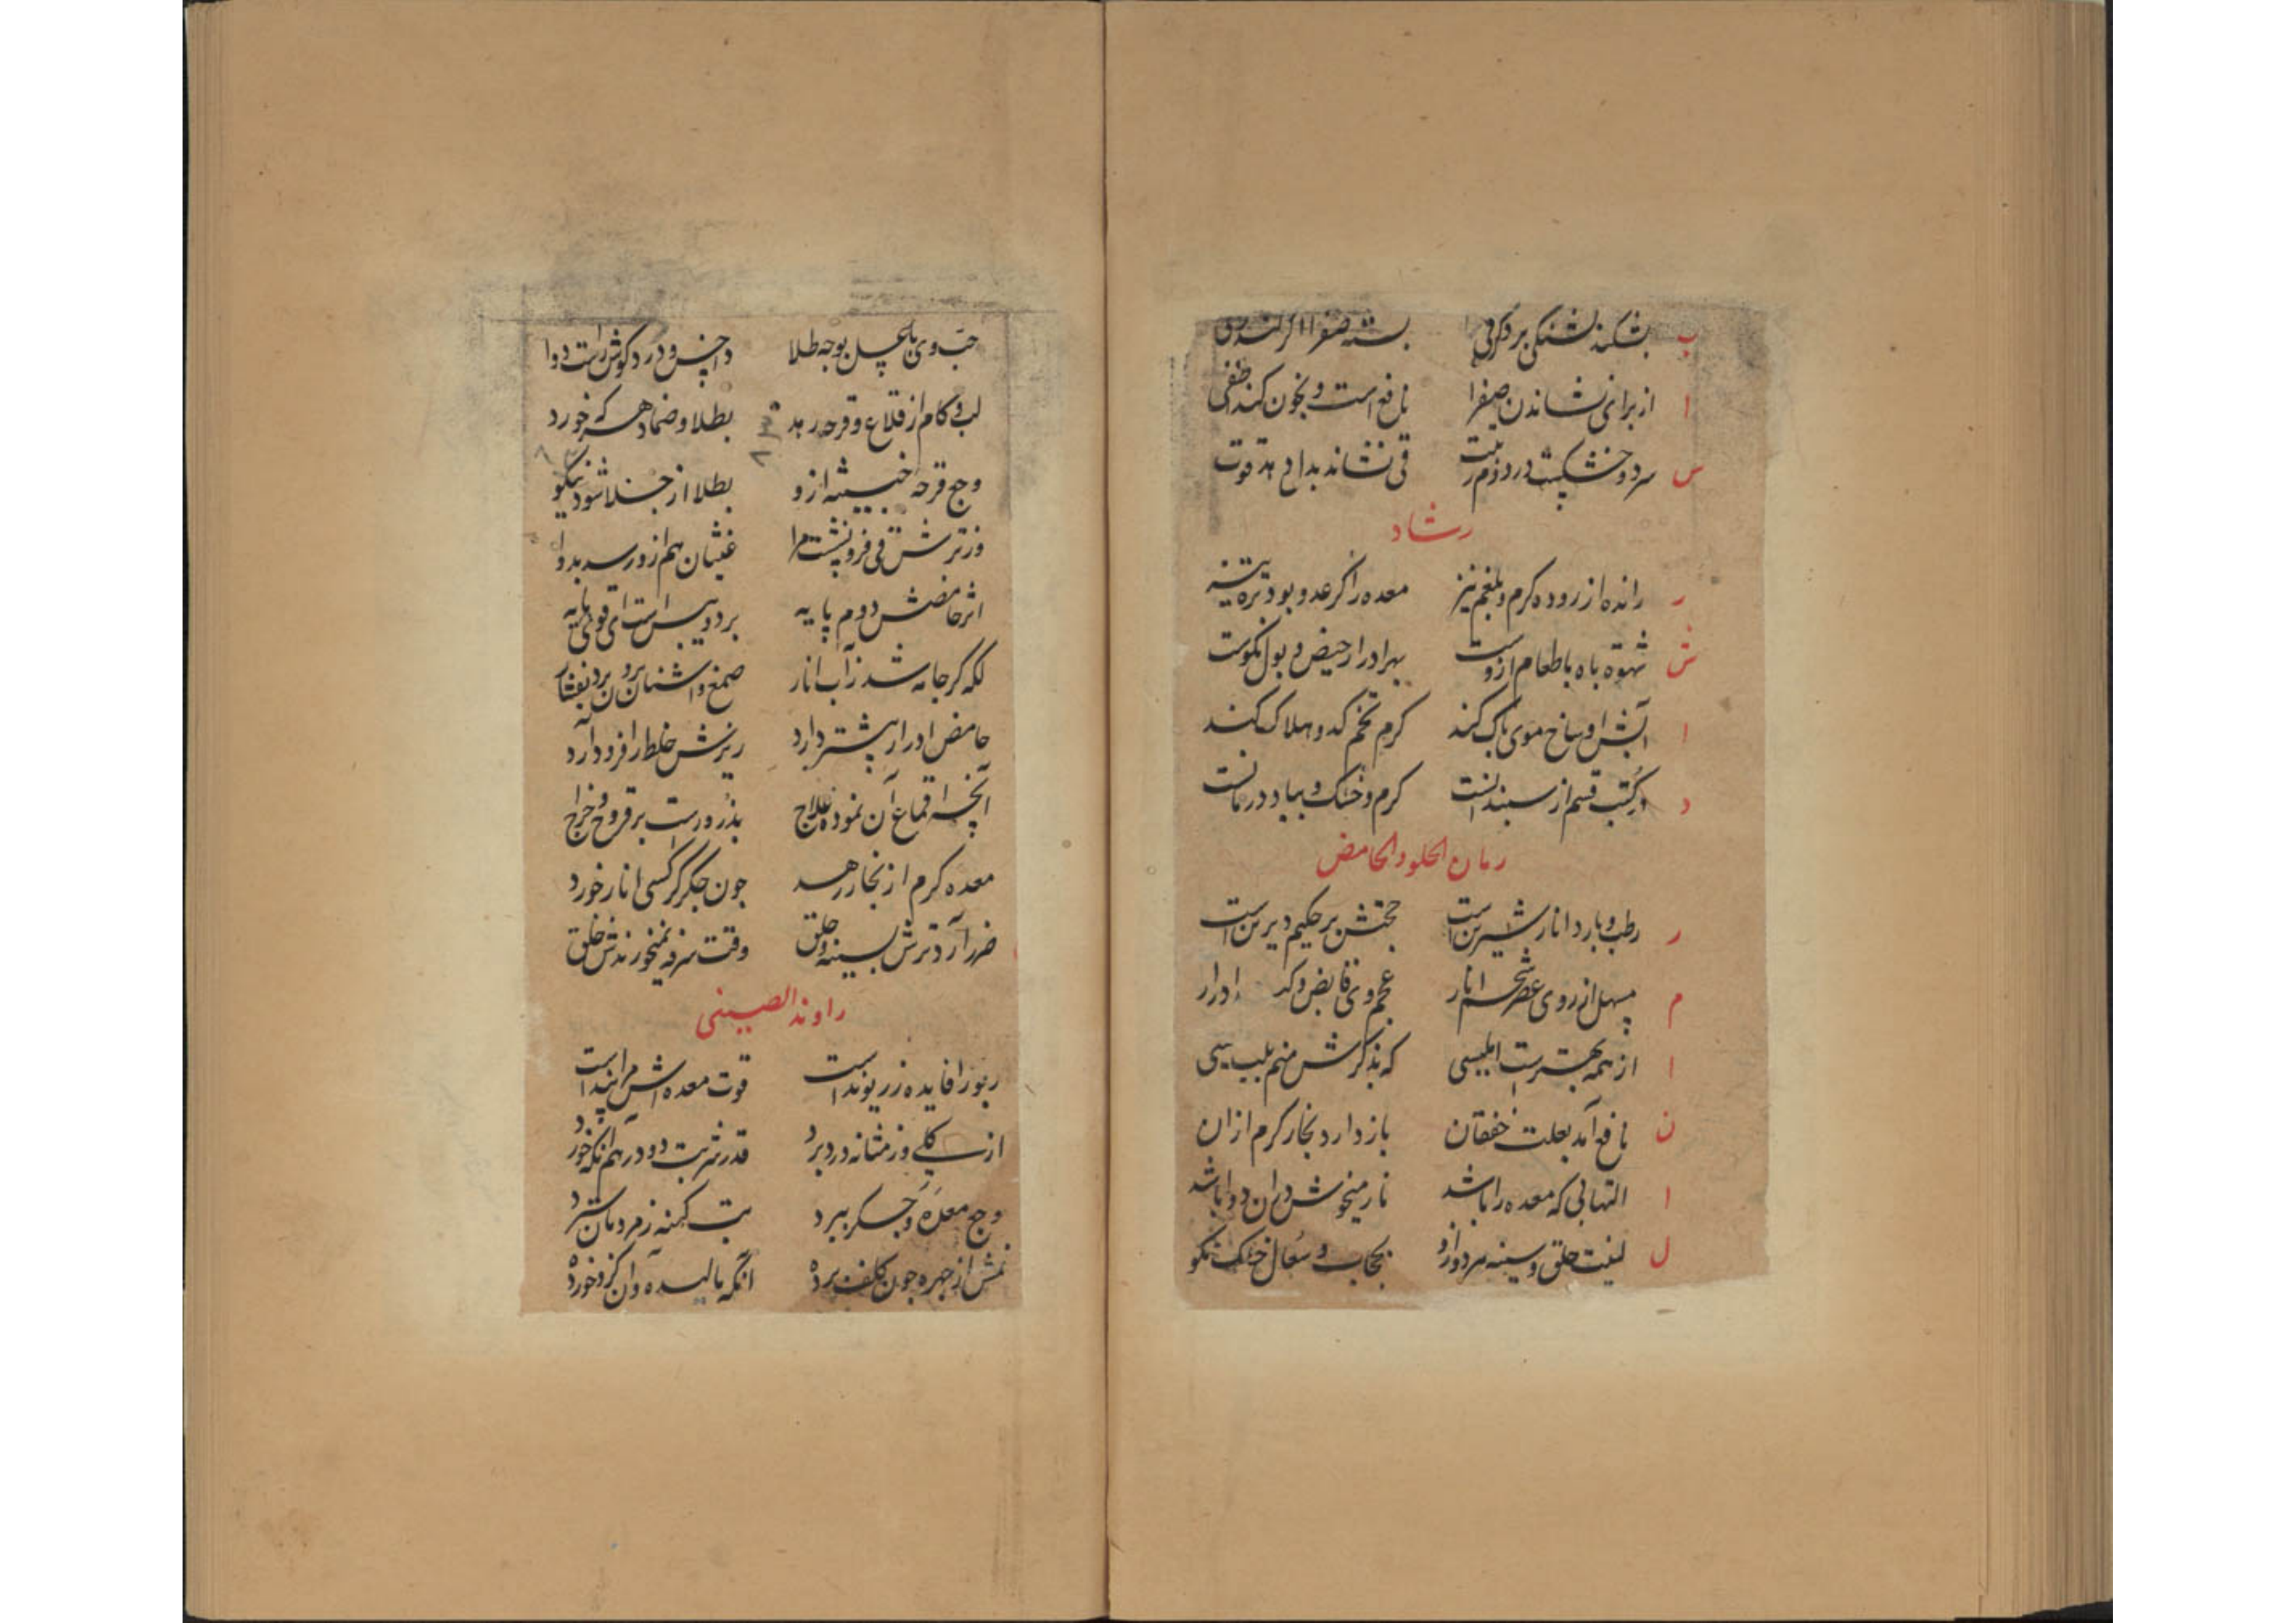 ب بشکند تشنگی برد گرمی بسته صفرا
ا از برای نشاندن صفرا نافع است و بخون کند
س سرد و خشکست در دوم قی نشاند بدا دهد قوت
رشاد
ر رانده از روده کرم و بلغم نیز معده را کرعد و بود تره تیز
ش شهوة باه با طعام ازوست بهر ادرار حیض و بول نکوست
ا آبش اوساخ موی پاک کند کرم تخم کدو هلاک کند
د در کتب قسم از سپندانست کرم و خشک و بباد درمانست
رمان الحلو والحامض
ر رطب و بارد انار شیرین است حجتش بر حکیم دیرین است
م مسهل از روی عصر شحم انار عجم وی قابض و کد ادرار
ا از همه بهترست ابلیسی که بذکرش منم بلب یسی
ن نافع آمد بعلت خفقان باز دارد بخار کرم ازان
ا التهابی که معده را باشد نار میخوش دران دوا باشد
ل لینت حلق و سینه سرد و ازو بحجاب و سعال خشک نکو
حب وی با عسل بوجه طلا داخس و درد کوش راست دوا
لب و کام از قلاع و قرحه رهد بطلا و ضماد هر که خورد
وجع قرحه خبیثه ازو بطلا از جلا شود نیکو
وز ترش قی فرو نشست مرا غثیان هم ازو رسد بدوا
اثر حامضش دوم پایه برد و یبس است ای قوی پایه
لکه کر جامه شد ز آب انار صمغ و اشنان برون برد بفشار
حامض ادرار پیشتر دارد ریزش خلط را فرود آرد
آنچه اقماع آن نموده علاج بذرورست بر قروح و خراج
معده کرم از بخار رهد چون جکر کر کسی انار خورد
ضرر آرد ترش بسینه و حلق وقت سرفه نمیخورندش خلق
راوند الصینی
ربو را فایده ز ریوند است قوت معده اش مرا پند است
از کلی وز مثانه درد برد قدر شربت دو درهم انکه خورد
وجع معده و جکر ببرد تب کهنه ز مردمان سترد
نمش از چهره چون کلف برده آنکه مالیده و آن کزو خورده